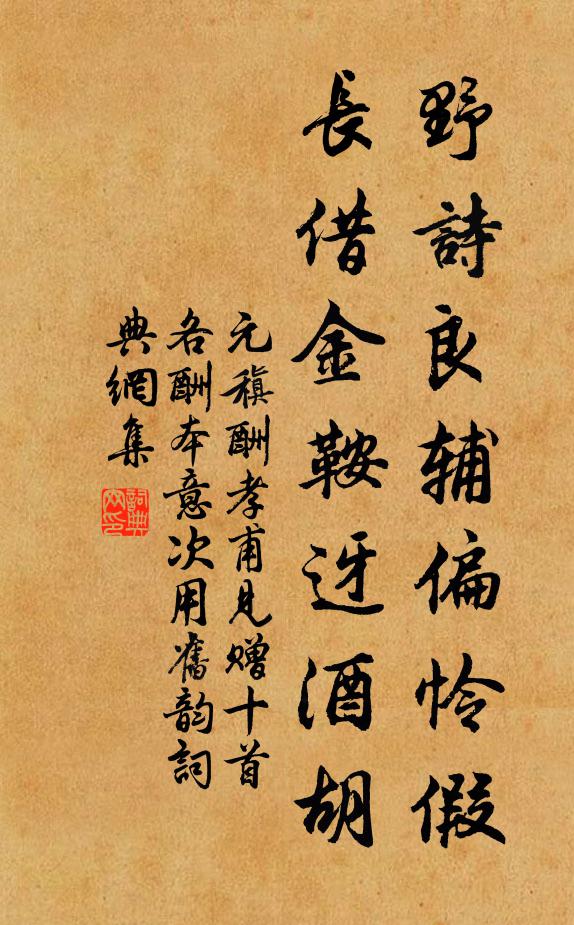 野詩良辅偏怜假
長借金鞍迓酒胡
元稹酬孝甫見赠十首
各酬本意次用舊韵詞
典網集
詞典
网印